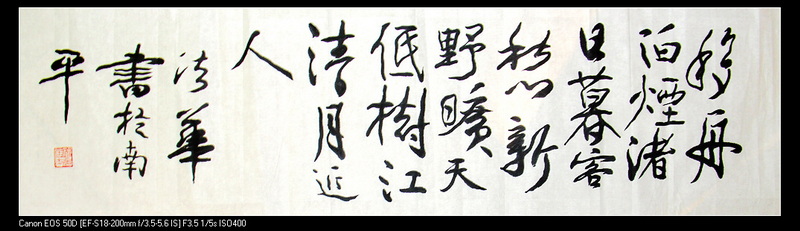 移舟
泊煙渚
日暮客
愁心新
野曠天
低樹江
清月近
人
法華
書於南
平
Canon EOS 50D [EF-S18-200mm f/3.5-5.6 IS] F3.5 1/5s ISO400